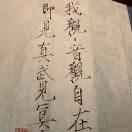 我觀音觀自在
即見真武見真